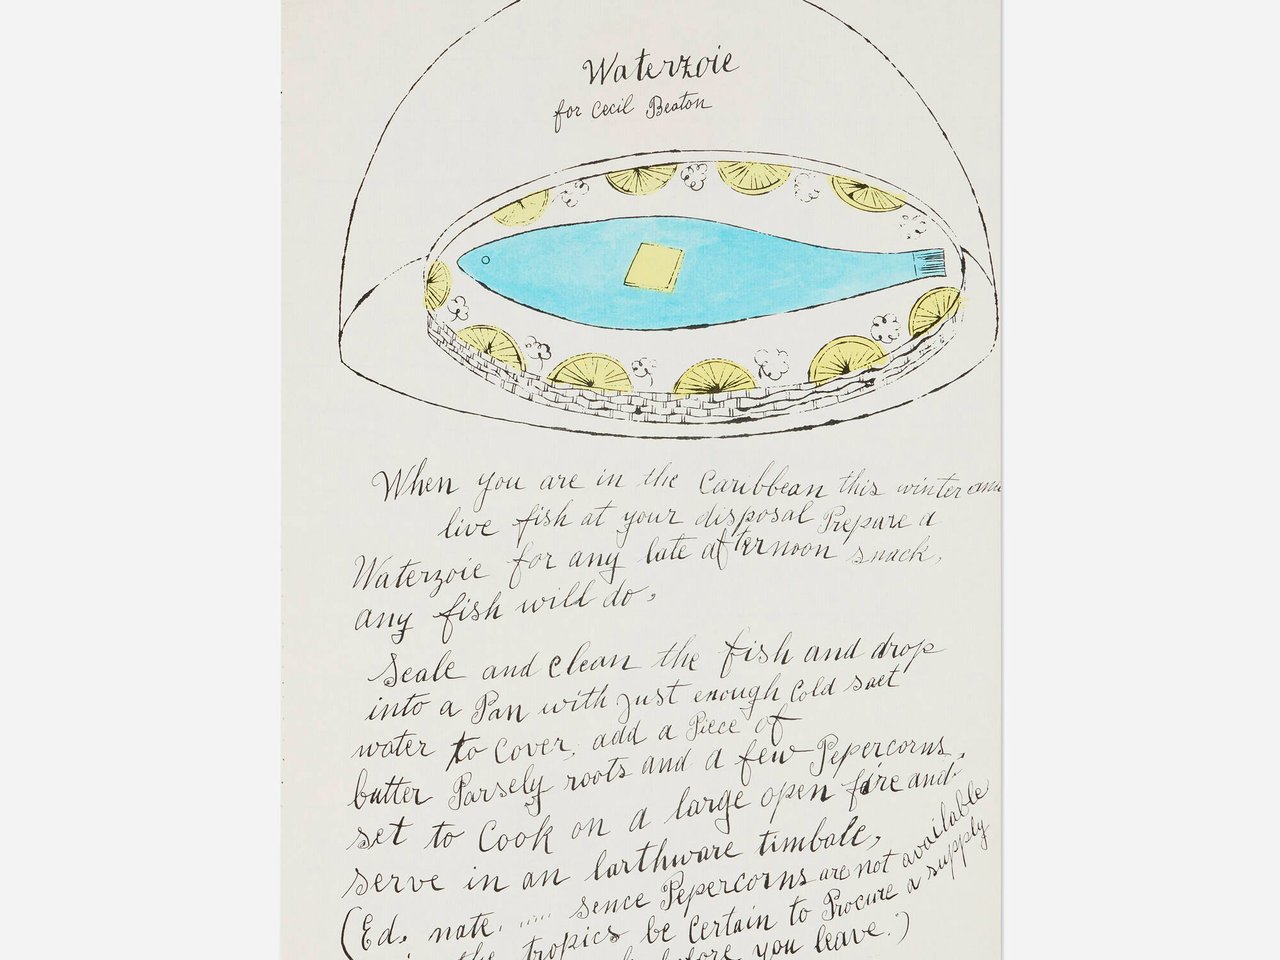 Waterzoie
for Cecil Beaton
When you are in the Caribbean this winter and
live fish at your disposal Prepare a
Waterzoie for any late afternoon snack,
any fish will do,
Scale and Clean the fish and drop
into a Pan with just enough Cold salt
water to Cover, add a Piece of
butter Parsely roots and a few Pepercorns,
set to Cook on a large open fire and
serve in an earthware timbale,
(Ed. note. sence Pepercorns are not available
in the tropics be Certain to Procure a supply
before you leave.)